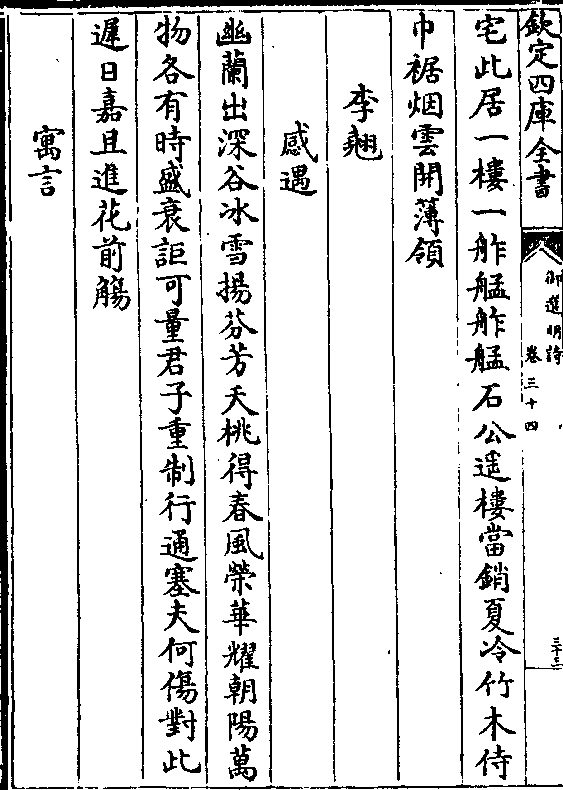 欽定四庫全書
御選明詩
卷三十四
三十三
宅此居一樓一舴艋舴艋石公遥樓當銷夏冷竹木侍
巾裾烟雲開薄領
李翹
感遇
幽蘭出深谷冰雪揚芬芳夭桃得春風榮華耀朝陽萬
物各有時盛衰詎可量君子重制行通塞夫何傷對此
遲日嘉且進花前觴
寓言